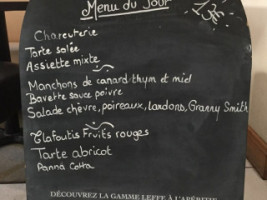 Menu du Jour
13€
Charcuterie
Tarte salée
Assiette mixte
Manchons de canard thym et miel
Bavette sauce poivre
Salade chèvre, poireaux, lardons, Granny Smith
Clafoutis Fruits rouges
Tarte abricot
Panna Cotta
DÉCOUVREZ LA GAMME LEFFE À L'APÉRITIF